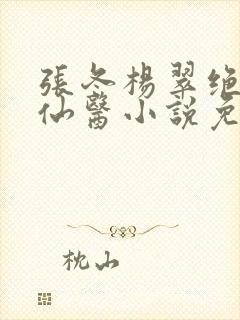 張冬楊翠绝
仙醫小說免
枕山